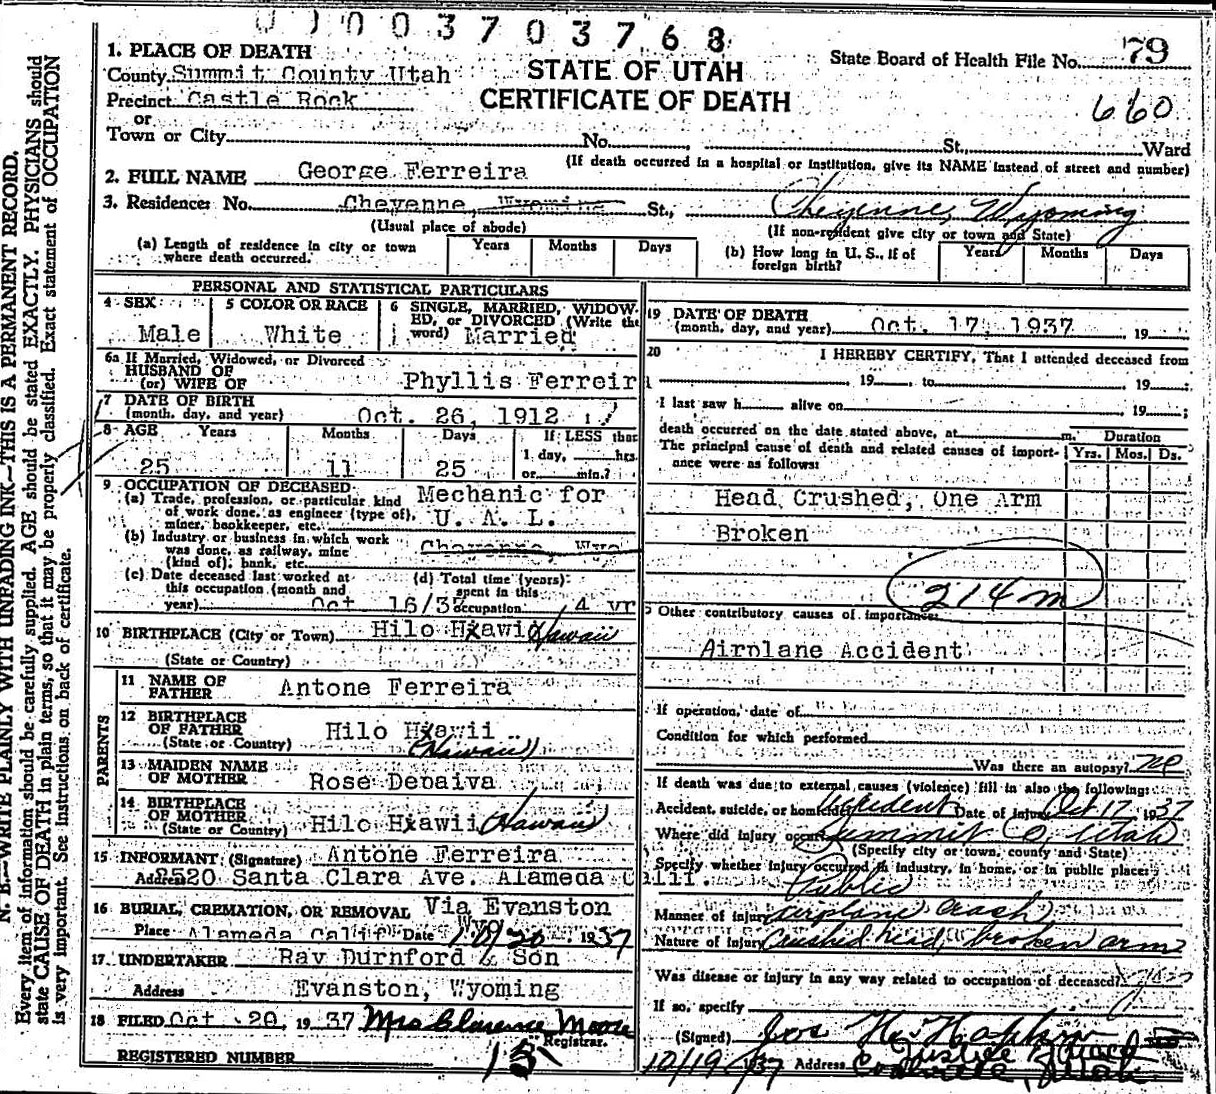 0003703768
1. PLACE OF DEATH
County Summit County Utah
Precinct Castle Rock
or
Town or City No. St., Ward
STATE OF UTAH
CERTIFICATE OF DEATH
State Board of Health File No. 79
660
(If death occurred in a hospital or institution, give its NAME instead of street and number)
2. FULL NAME George Ferreira
3. Residence: No. Cheyenne, Wyoming St., Cheyenne, Wyoming
(Usual place of abode) (If non-resident give city or town and State)
(a) Length of residence in city or town where death occurred. Years Months Days
(b) How long in U. S., if of foreign birth? Years Months Days
PERSONAL AND STATISTICAL PARTICULARS
4 SEX Male
5 COLOR OR RACE White
6 SINGLE, MARRIED, WIDOWED, or DIVORCED (Write the word) Married
6a If Married, Widowed, or Divorced
HUSBAND OF
(or) WIFE OF Phyllis Ferreir
7 DATE OF BIRTH
(month, day, and year) Oct. 26, 1912
8 AGE Years Months Days If LESS than
25 11 25 1 day, hrs.
or min.?
9 OCCUPATION OF DECEASED
(a) Trade, profession, or particular kind of work done, as engineer (type of), miner, bookkeeper, etc. Mechanic for
U. A. L.
(b) Industry or business in which work was done, as railway, mine (kind of), bank, etc. Cheyenne, Wyo
(c) Date deceased last worked at this occupation (month and year) Oct 16/37
(d) Total time (years) spent in this occupation 4 yr
10 BIRTHPLACE (City or Town) Hilo Hxawii Hawaii
(State or Country)
PARENTS
11 NAME OF FATHER Antone Ferreira
12 BIRTHPLACE OF FATHER Hilo Hxawii
(State or Country) (Hawaii)
13 MAIDEN NAME OF MOTHER Rose Depaiva
14 BIRTHPLACE OF MOTHER
(State or Country) Hilo Hxawii (Hawaii)
15 INFORMANT: (Signature) Antone Ferreira
Address 2520 Santa Clara Ave. Alameda Calif.
16 BURIAL, CREMATION, OR REMOVAL Via Evanston
Wyo
Place Alameda Calif Date 10/20 1937
17. UNDERTAKER Ray Durnford & Son
Address Evanston, Wyoming
18 FILED Oct 20, 1937 Mrs Clarence Moore
Registrar.
REGISTERED NUMBER 13
19 DATE OF DEATH
(month, day, and year) Oct. 17, 1937 19
20 I HEREBY CERTIFY, That I attended deceased from
19 , to 19 ;
I last saw h alive on , 19 ;
death occurred on the date stated above, at m.
The principal cause of death and related causes of importance were as follows:
Duration
Yrs. Mos. Ds.
Head Crushed, One Arm
Broken
214m
Other contributory causes of importance:
Airplane Accident
If operation, date of
Condition for which performed
Was there an autopsy? no
If death was due to external causes (violence) fill in also the following:
Accident, suicide, or homicide? accident Date of injury Oct 17 1937
Where did injury occur? Summit Co Utah
(Specify city or town, county and State)
Specify whether injury occurred in industry, in home, or in public place:
Public
Manner of injury airplane crash
Nature of Injury Crushed head, broken arm
Was disease or injury in any way related to occupation of deceased?
If so, specify
(Signed) Jos H. Hopkin
Justice Peace
10/19 1937 Address Coalville, Utah.
N. B.—WRITE PLAINLY WITH UNFADING INK—THIS IS A PERMANENT RECORD.
Every item of information should be carefully supplied. AGE should be stated EXACTLY. PHYSICIANS should
state CAUSE OF DEATH in plain terms, so that it may be properly classified. Exact statement of OCCUPATION
is very important. See instructions on back of certificate.